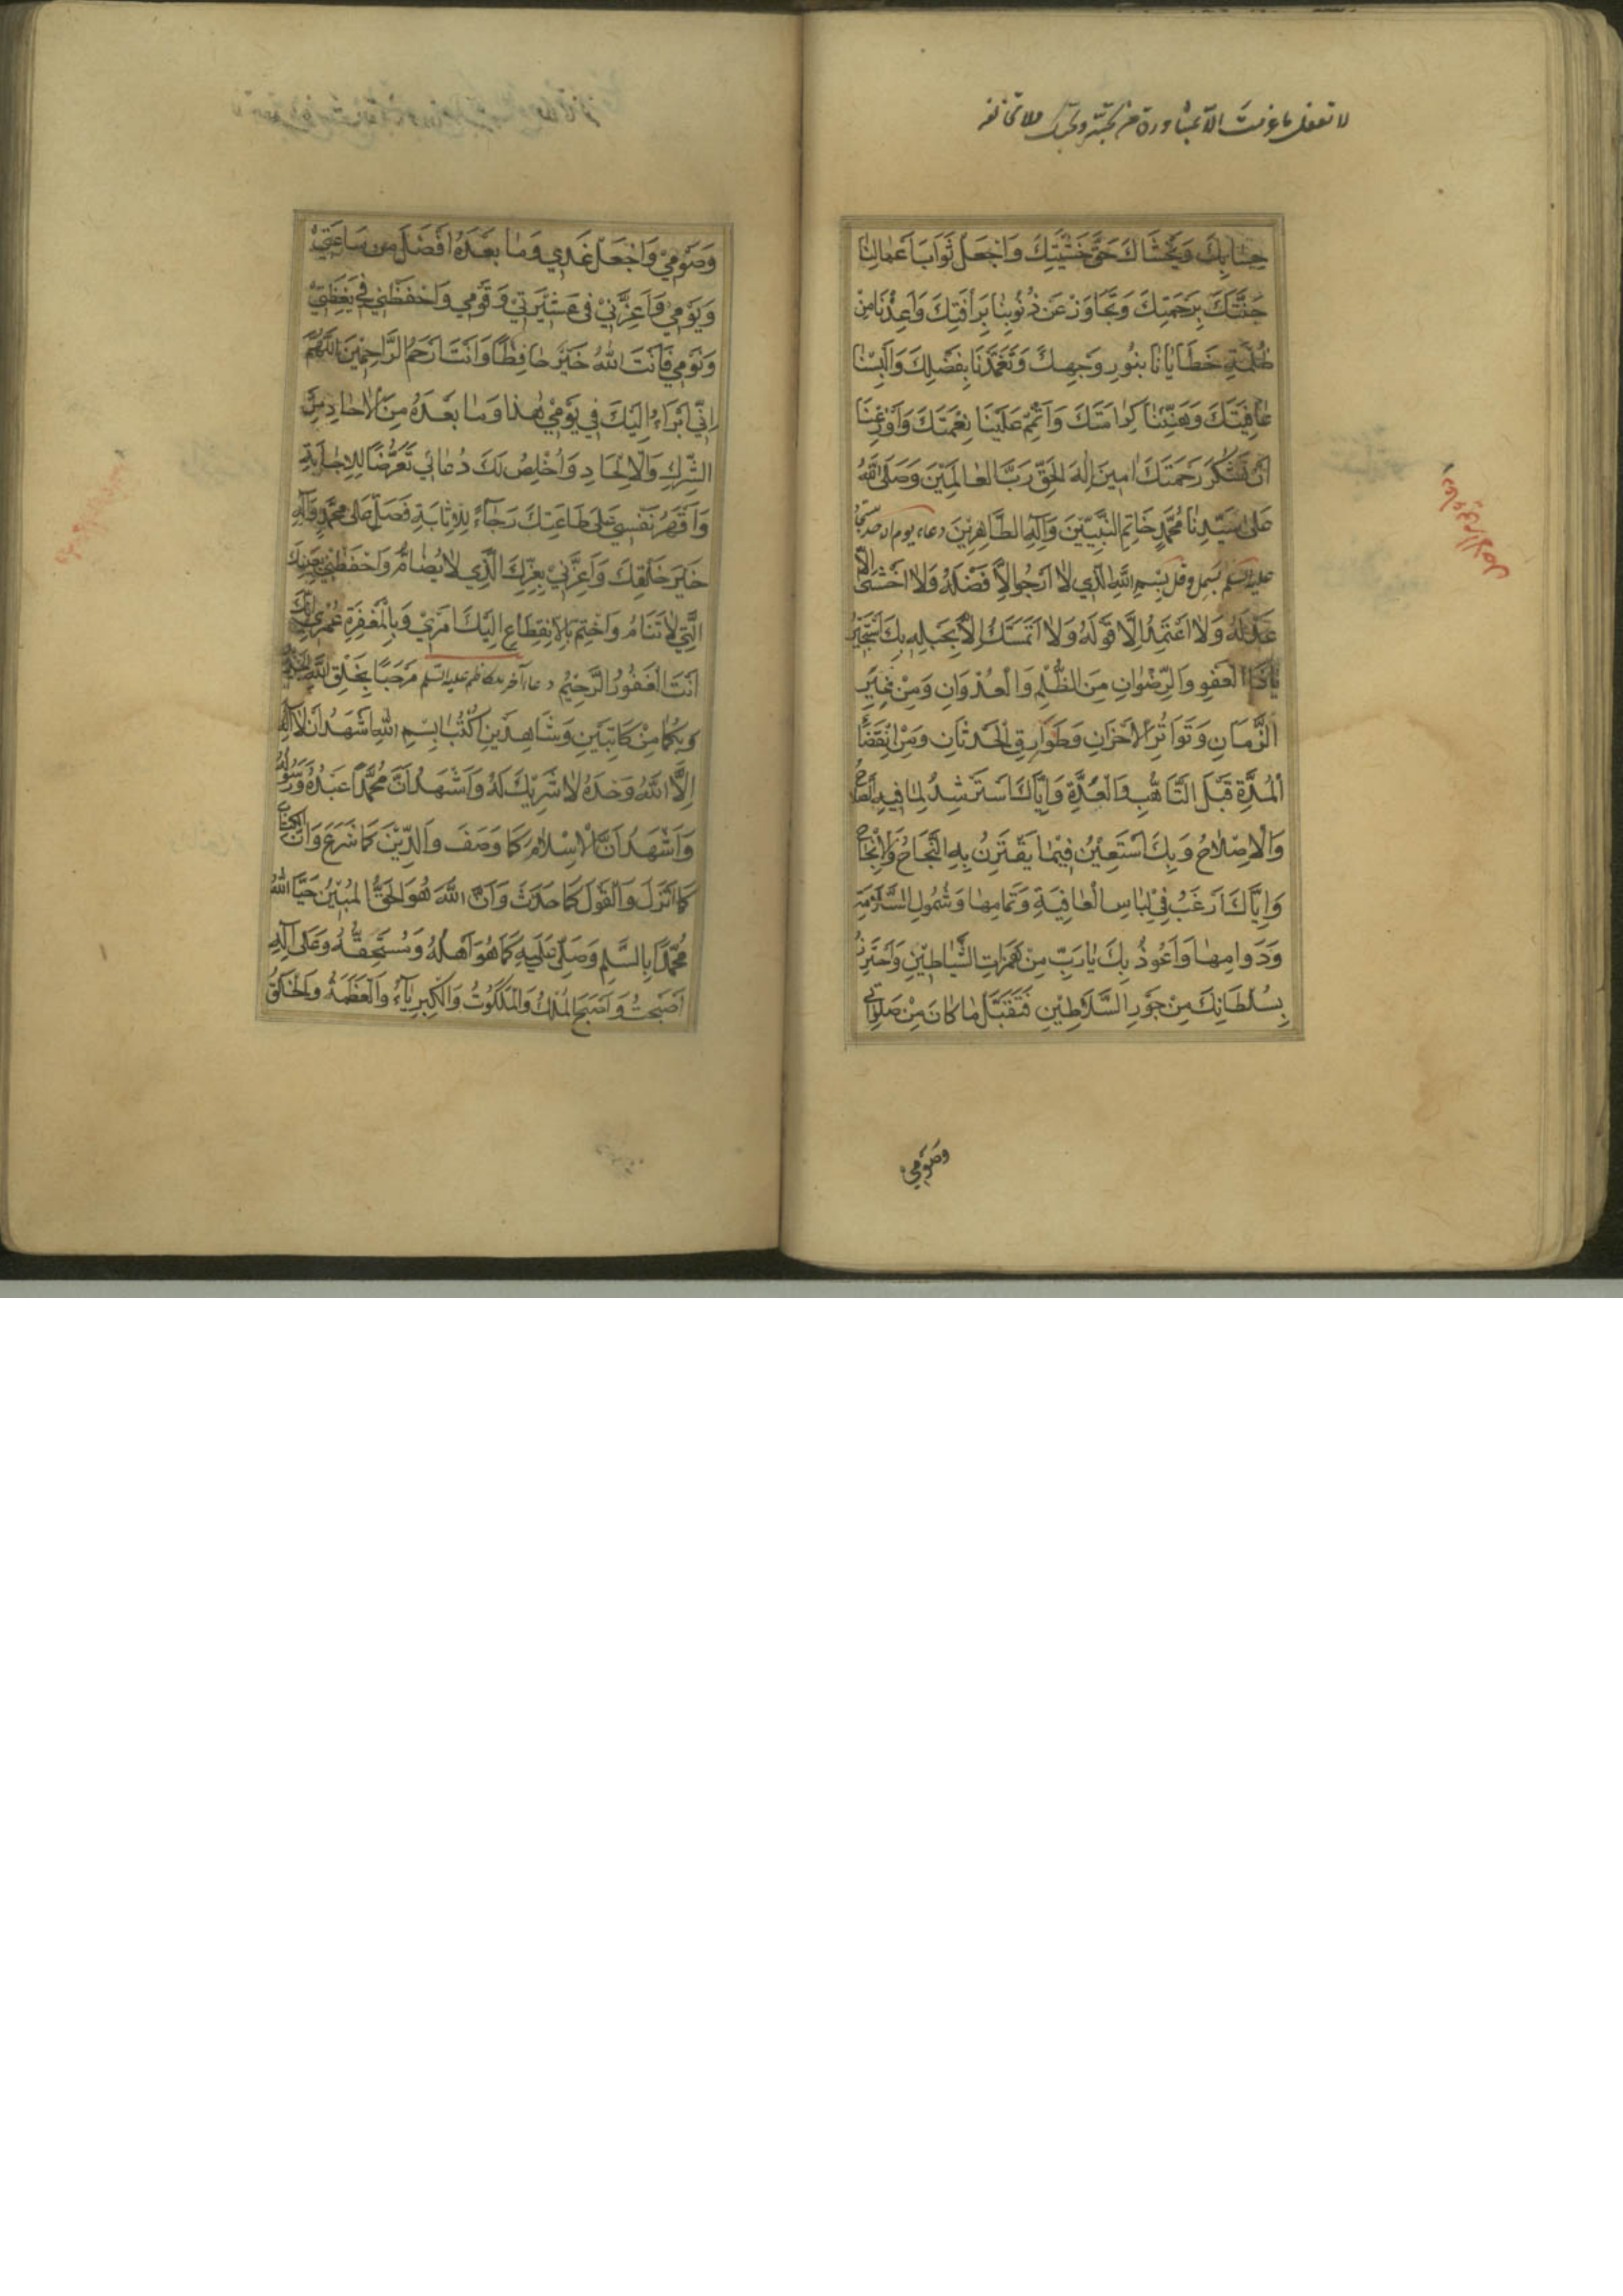 لا تفعل ما عزمت الا بمشاورة من تحبّه ويحبّك
حِسَابِكَ وَيَخْشَاكَ حَقَّ خَشْيَتِكَ وَاجْعَلْ ثَوَابَ أَعْمَالِنَا
جَنَّتَكَ بِرَحْمَتِكَ وَتَجَاوَزْ عَنْ ذُنُوبِنَا بِرَأْفَتِكَ وَأَعِذْنَا مِنْ
ظُلْمَةِ خَطَايَانَا بِنُورِ وَجْهِكَ وَتَغَمَّدْنَا بِفَضْلِكَ وَأَلْبِسْنَا
عَافِيَتَكَ وَهَنِّئْنَا كَرَامَتَكَ وَأَتْمِمْ عَلَيْنَا نِعْمَتَكَ وَأَوْزِعْنَا
أَنْ نَشْكُرَ رَحْمَتَكَ امِينَ إِلٰهَ الْحَقِّ رَبَّ الْعَالَمِينَ وَصَلَّى اللّٰهُ
عَلَى سَيِّدِنَا مُحَمَّدٍ خَاتِمِ النَّبِيِّينَ وَآلِهِ الطَّاهِرِينَ دعاء يوم الاحد سجاد
عليه السلم بسمل وقل بِسْمِ اللّٰهِ الَّذِي لَا أَرْجُو إِلَّا فَضْلَهُ وَلَا أَخْشَى إِلَّا
عَدْلَهُ وَلَا أَعْتَمِدُ إِلَّا قَوْلَهُ وَلَا أَتَمَسَّكُ إِلَّا بِحَبْلِهِ بِكَ أَسْتَجِيرُ
يَا ذَا الْعَفْوِ وَالرِّضْوَانِ مِنَ الظُّلْمِ وَالْعُدْوَانِ وَمِنْ غِيَرِ
الزَّمَانِ وَتَوَاتُرِ الْأَحْزَانِ وَطَوَارِقِ الْحَدَثَانِ وَمِنِ انْقِضَاءِ
الْمُدَّةِ قَبْلَ التَّأَهُّبِ وَالْعُدَّةِ وَإِيَّاكَ أَسْتَرْشِدُ لِمَا فِيهِ الصَّلَاحُ
وَالْإِصْلَاحُ وَبِكَ أَسْتَعِينُ فِيمَا يَقْتَرِنُ بِهِ النَّجَاحُ وَالْإِنْجَاحُ
وَإِيَّاكَ أَرْغَبُ فِي لِبَاسِ الْعَافِيَةِ وَتَمَامِهَا وَشُمُولِ السَّلَامَةِ
وَدَوَامِهَا وَأَعُوذُ بِكَ يَا رَبِّ مِنْ هَمَزَاتِ الشَّيَاطِينِ وَأَحْتَرِزُ
بِسُلْطَانِكَ مِنْ جَوْرِ السَّلَاطِينِ فَتَقَبَّلْ مَا كَانَ مِنْ صَلَوَاتِي
وَصَوْمِي
وَصَوْمِي وَاجْعَلْ غَدِي وَمَا بَعْدَهُ أَفْضَلَ مِنْ سَاعَتِي
وَيَوْمِي وَأَعِزَّنِي فِي عَشِيرَتِي وَقَوْمِي وَاحْفَظْنِي فِي يَقَظَتِي
وَنَوْمِي فَأَنْتَ اللّٰهُ خَيْرٌ حَافِظًا وَأَنْتَ أَرْحَمُ الرَّاحِمِينَ اللّٰهُمَّ
إِنِّي أَبْرَاءُ إِلَيْكَ فِي يَوْمِي هٰذَا وَمَا بَعْدَهُ مِنَ الْآحَادِ مِنَ
الشِّرْكِ وَالْإِلْحَادِ وَأُخْلِصُ لَكَ دُعَائِي تَعَرُّضًا لِلْإِجَابَةِ
وَأَقْهَرُ نَفْسِي عَلَى طَاعَتِكَ رَجَاءً لِلْإِثَابَةِ فَصَلِّ عَلَى مُحَمَّدٍ وَآلِهِ
خَيْرِ خَلْقِكَ وَأَعِزَّنِي بِعِزِّكَ الَّذِي لَا يُضَامُ وَاحْفَظْنِي بِعَيْنِكَ
الَّتِي لَا تَنَامُ وَاخْتِمْ بِالْاِنْقِطَاعِ إِلَيْكَ أَمْرِي وَبِالْمَغْفِرَةِ عُمْرِي إِنَّكَ
أَنْتَ الْغَفُورُ الرَّحِيمُ دعاء آخر للكاظم عليه السلم مَرْحَبًا بِخَلْقِ اللّٰهِ الْجَدِيدِ
وَبِكُمَا مِنْ كَاتِبَيْنِ وَشَاهِدَيْنِ اكْتُبَا بِسْمِ اللّٰهِ أَشْهَدُ أَنْ لَا إِلٰهَ
إِلَّا اللّٰهُ وَحْدَهُ لَا شَرِيكَ لَهُ وَأَشْهَدُ أَنَّ مُحَمَّدًا عَبْدُهُ وَرَسُولُهُ
وَأَشْهَدُ أَنَّ الْإِسْلَامَ كَمَا وَصَفَ وَالدِّينَ كَمَا شَرَعَ وَأَنَّ الْكِتَابَ
كَمَا أَنْزَلَ وَالْقَوْلَ كَمَا حَدَّثَ وَأَنَّ اللّٰهَ هُوَ الْحَقُّ الْمُبِينُ حَيَّا اللّٰهُ
مُحَمَّدًا بِالسَّلَمِ وَصَلَّى عَلَيْهِ كَمَا هُوَ أَهْلُهُ وَمُسْتَحِقُّهُ وَعَلَى آلِهِ
أَصْبَحْتُ وَأَصْبَحَ الْمُلْكُ وَالْمَلَكُوتُ وَالْكِبْرِيَاءُ وَالْعَظَمَةُ وَالْخَلْقُ